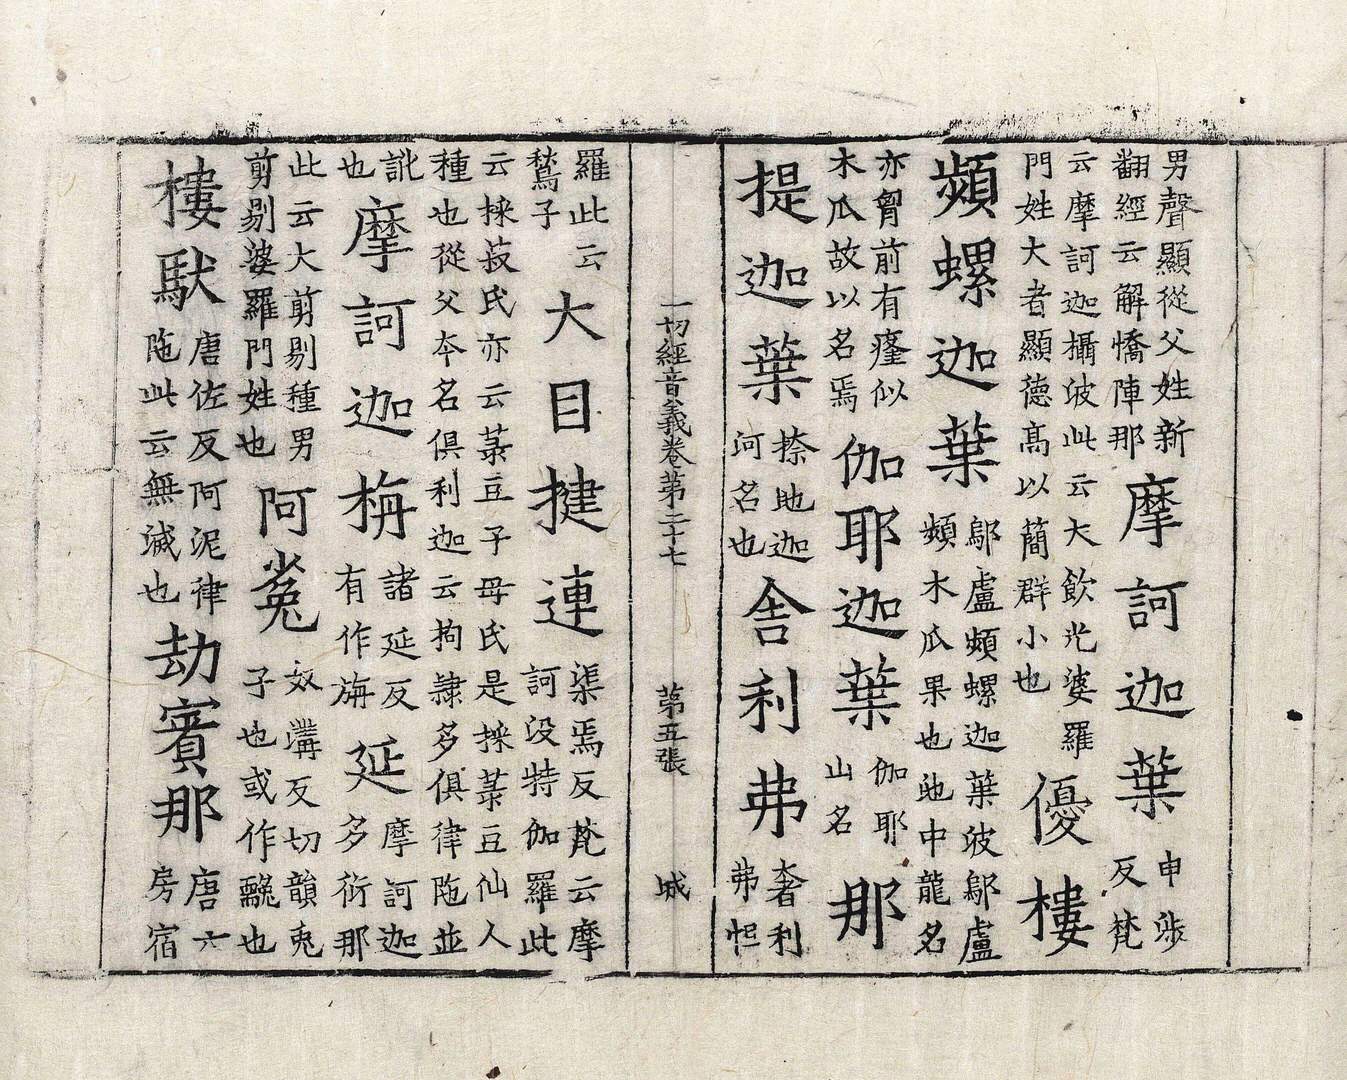 男聲顯從父姓新
翻經云解憍陣那
摩訶迦葉
申涉
反梵
云摩訶迦攝波此云大飲光婆羅
門姓大者顯德高以蕳群小也
優樓
頻螺迦葉
鄔盧頻螺迦葉波鄔盧
頻木瓜果也虵中龍名
亦胷前有瘇似
木瓜故以名焉
伽耶迦葉
伽耶
山名
那
提迦葉
捺虵迦
河名也
舍利弗
奢利
弗怛
一切經音義卷第二十七 第五張 城
羅此云
鶖子
大目揵連
渠焉反梵云摩
訶沒特伽羅此
云採菽氏亦云菉豆子母氏是採菉豆仙人
種也從父本名俱利迦云拘隷多俱律陁並
訛
也
摩訶迦栴
諸延反
有作旃
延
摩訶迦
多衍那
此云大剪剔種男
剪剔婆羅門姓也
阿㝹
奴溝反切韻兎
子也或作䨲也
樓馱
唐佐反阿泥律
陁此云無滅也
劫賓那
唐云
房宿